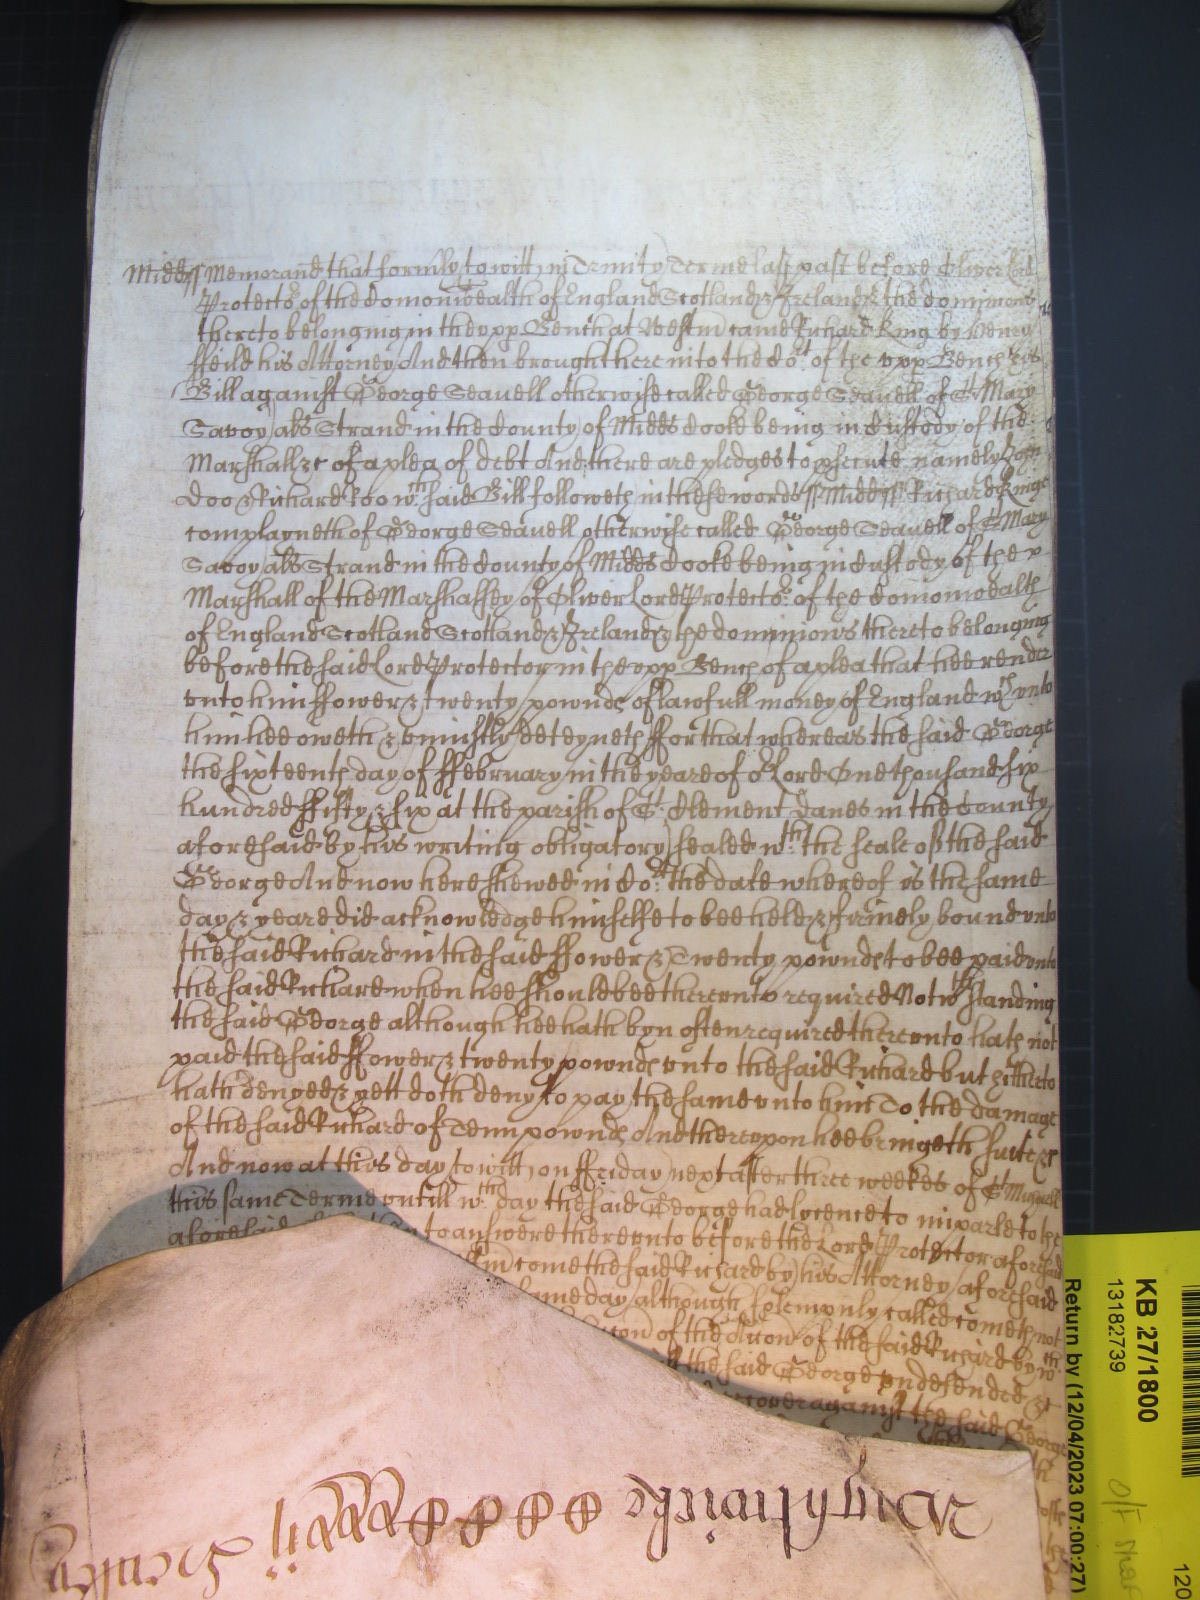 Midds ss Memorand that formlly to witt in Trinity Terme last past before Oliver Lord
Protector of the Comonwealth of England Scotland & Ireland & the dominions
thereto belonging in the upp Bench at Westm came Richard King by Henry
ffeild his Attorney And then brought here into the Cort of the upp Bench his
Bill against George Seavell otherwise called George Seavell of St Mary
Savoy als Strand in the County of Midds Cooke being in Custody of the
Marshall &c of a plea of debt And there are pledges to psecute namely John
Doo & Richard Roo wch said Bill followeth in these words ss Midds ss Richard Kinge
complayneth of George Seavell otherwise called George Seavell of St Mary
Savoy als Strand in the County of Midds Cooke being in Custody of the
Marshall of the Marshalsey of Oliver Lord Protector of the Comonwealth
of England Scotland Scotland & Ireland & the dominions thereto belonging
before the said Lord Protector in the upp Bench of a plea that hee render
unto him ffower & twenty pownds of lawfull money of England wch unto
him hee oweth & uniustly deteyneth ffor that whereas the said George
the sixteenth day of ffebruary in the yeare of or Lord One thousand six
hundred ffifty & six at the parish of St Clement Danes in the County
aforesaid by his writing obligatory sealed wth the seale of the said
George And now here shewed in Cort the date whereof is the same
day & yeare did acknowledge himselfe to bee held & firmely bound unto
the said Richard in the said ffower & Twenty pownds to bee paid unto
the said Richard when hee should bee thereunto required Notwthstanding
the said George although hee hath byn often required thereunto hath not
paid the said ffower & twenty pownds unto the said Richard but hitherto
hath denyed & yett doth deny to pay the same unto him To the damage
of the said Richard of Tenn pownds And thereupon hee bringeth suite &c
And now at this day to witt on ffriday next after three weekes of St Michaell
this same Terme untill wch day the said George had lycence to imparle to the
aforesaid to answere thereunto before the Lord Protector aforesaid
come the said Richard by his Attorney aforesaid
same day although solemnly called cometh not
of the accon of the said Richard by wch
the said George undefended &c
recover against the said George
Wightwicke
KB 27/1800
13182739
Return by (12/04/2023 07:00:27)
120